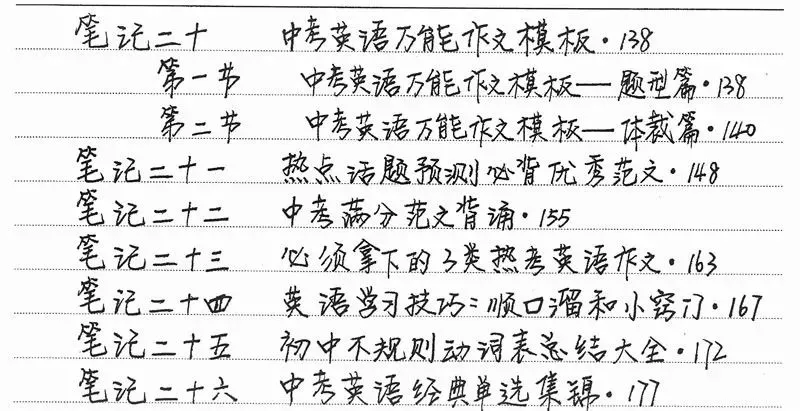 笔记二十 中考英语万能作文模板·138
第一节 中考英语万能作文模板——题型篇·138
第二节 中考英语万能作文模板——体裁篇·140
笔记二十一 热点话题预测必背优秀范文·148
笔记二十二 中考满分范文背诵·155
笔记二十三 必须拿下的3类热考英语作文·163
笔记二十四 英语学习技巧：顺口溜和小窍门·167
笔记二十五 初中不规则动词表总结大全·172
笔记二十六 中考英语经典单选集锦·177